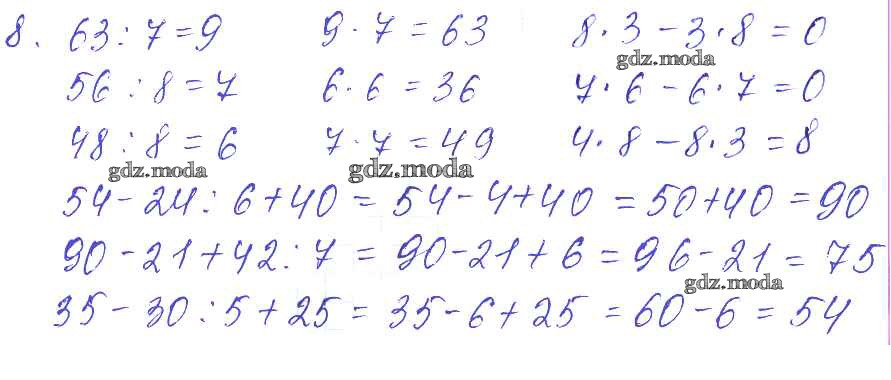 8. 63 : 7 = 9 9 · 7 = 63 8 · 3 – 3 · 8 = 0
gdz.moda
56 : 8 = 7 6 · 6 = 36 7 · 6 – 6 · 7 = 0
48 : 8 = 6 7 · 7 = 49 4 · 8 – 8 · 3 = 8
gdz.moda gdz.moda
54 – 24 : 6 + 40 = 54 – 4 + 40 = 50 + 40 = 90
90 – 21 + 42 : 7 = 90 – 21 + 6 = 96 – 21 = 75
gdz.moda
35 – 30 : 5 + 25 = 35 – 6 + 25 = 60 – 6 = 54